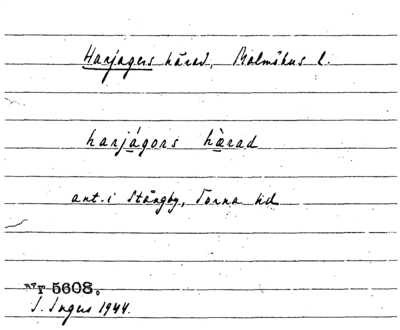 Harjagers härad, Malmöhus l.
harjágors hàrad
ant. i Stångby, Torna hd
5608.
J. Ingers 1944.